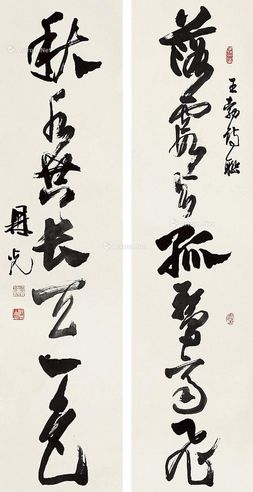 落霞与孤鶩齊飛
王勃詩聯
秋水共長天一色